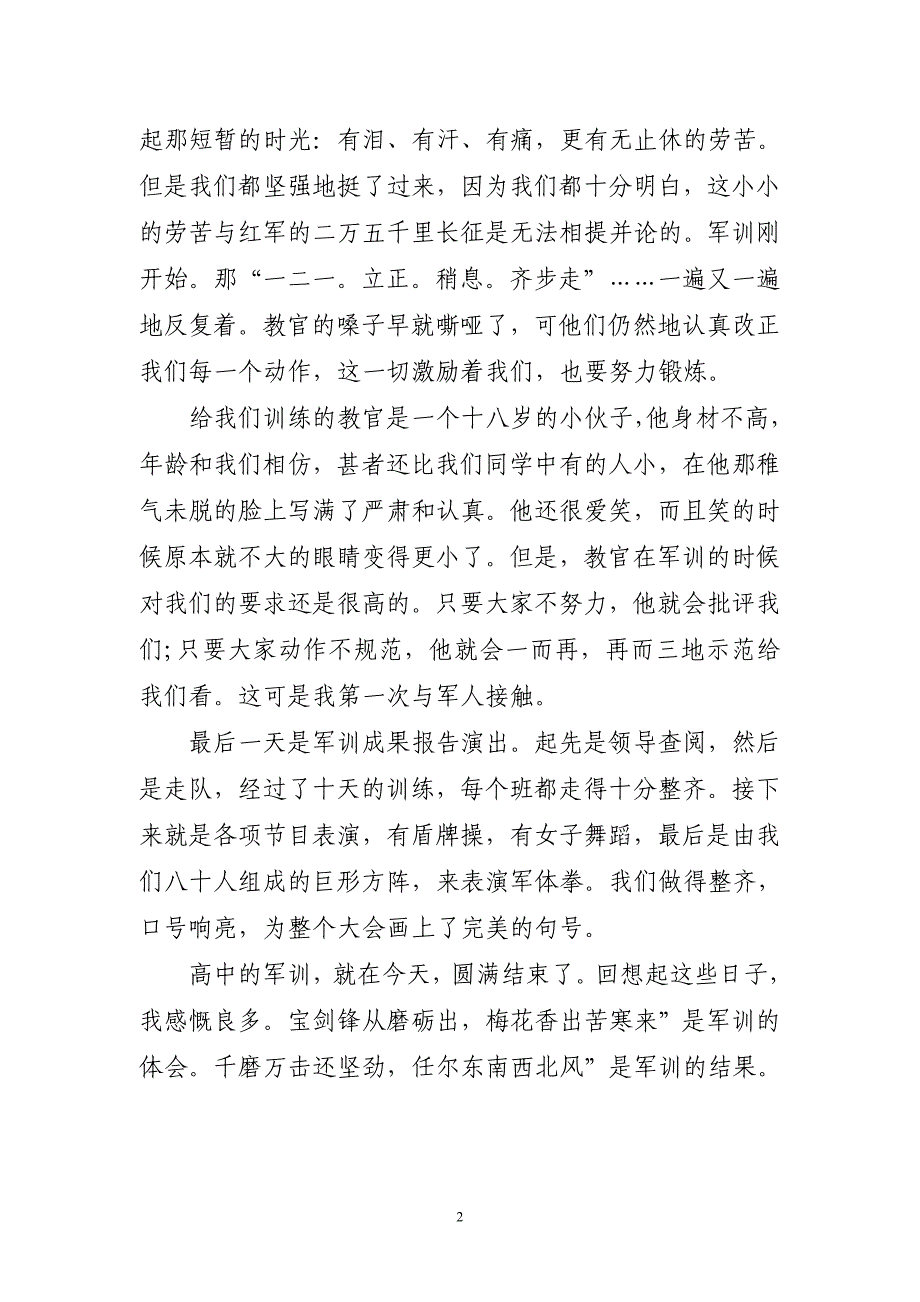 起那短暂的时光：有泪、有汗、有痛，更有无止休的劳苦。
但是我们都坚强地挺了过来，因为我们都十分明白，这小小
的劳苦与红军的二万五千里长征是无法相提并论的。军训刚
开始。那“一二一。立正。稍息。齐步走”……一遍又一遍
地反复着。教官的嗓子早就嘶哑了，可他们仍然地认真改正
我们每一个动作，这一切激励着我们，也要努力锻炼。
给我们训练的教官是一个十八岁的小伙子,他身材不高，
年龄和我们相仿，甚者还比我们同学中有的人小，在他那稚
气未脱的脸上写满了严肃和认真。他还很爱笑，而且笑的时
候原本就不大的眼睛变得更小了。但是，教官在军训的时候
对我们的要求还是很高的。只要大家不努力，他就会批评我
们;只要大家动作不规范，他就会一而再，再而三地示范给
我们看。这可是我第一次与军人接触。
最后一天是军训成果报告演出。起先是领导查阅，然后
是走队，经过了十天的训练，每个班都走得十分整齐。接下
来就是各项节目表演，有盾牌操，有女子舞蹈，最后是由我
们八十人组成的巨形方阵，来表演军体拳。我们做得整齐，
口号响亮，为整个大会画上了完美的句号。
高中的军训，就在今天，圆满结束了。回想起这些日子，
我感慨良多。宝剑锋从磨砺出，梅花香出苦寒来”是军训的
体会。千磨万击还坚劲，任尔东南西北风”是军训的结果。
2